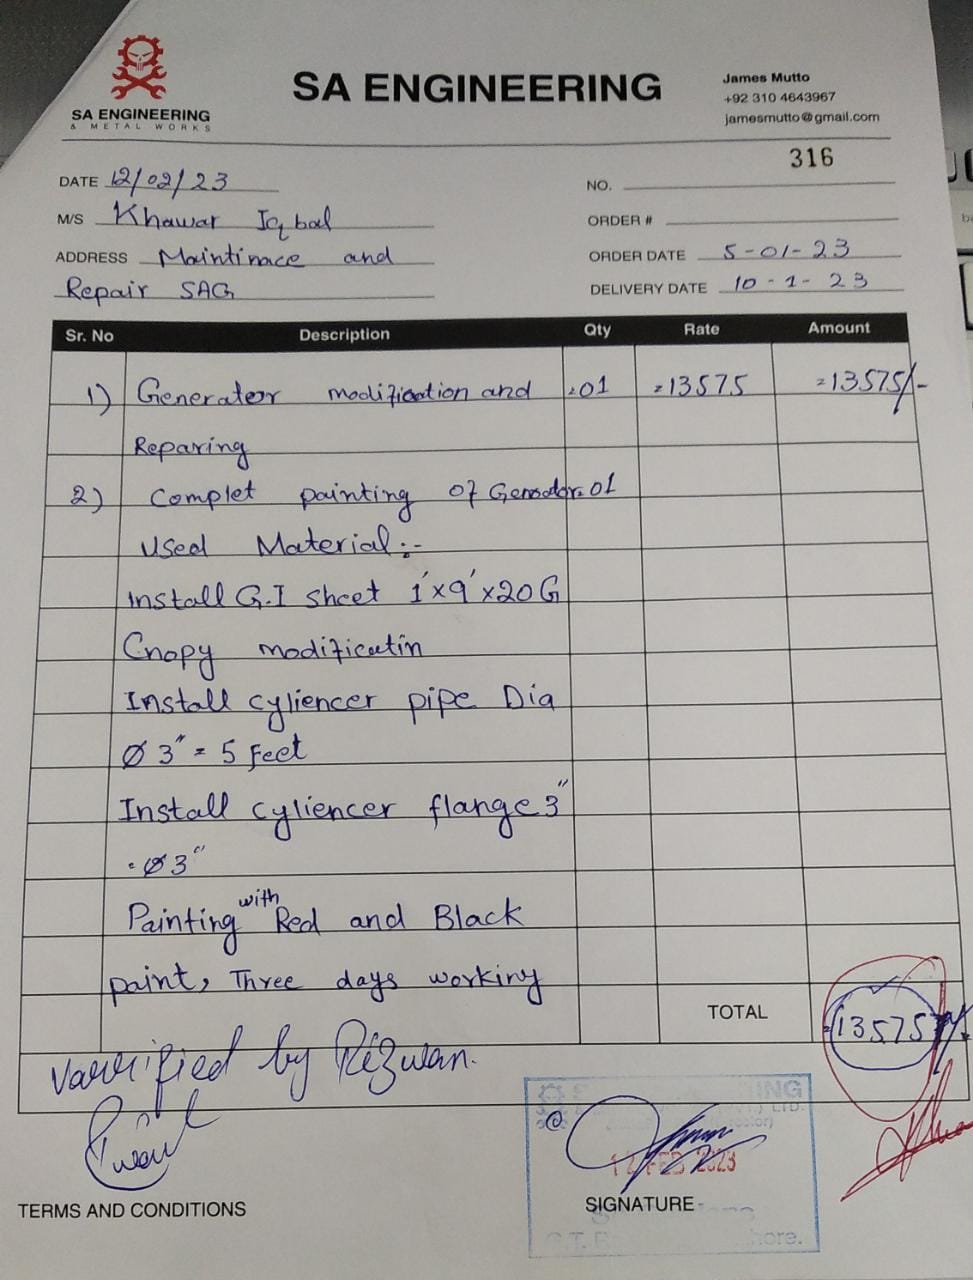 SA ENGINEERING
& METAL WORKS
SA ENGINEERING
James Mutto
+92 310 4643967
jamesmutto@gmail.com
316
DATE 12/02/23
NO.
M/S Khawar Iqbal
ORDER #
ADDRESS Maintinace and
ORDER DATE 5-01-23
Repair SAG
DELIVERY DATE 10-1-23
Sr. No Description Qty Rate Amount
1) Generator modification and =01 =13575 =13575/-
Reparing
2) Complet painting of =01
Used Material:-
Install G.I sheet 1'x9'x20G
Cnopy modificatin
Install cyliencer pipe Dia
Ø 3" = 5 Feet
Install cyliencer flange 3"
=Ø3"
Painting with Red and Black
paint, Three days working
TOTAL =13575/-
Varrified by Rizwan.
12 FEB 2023
TERMS AND CONDITIONS
SIGNATURE